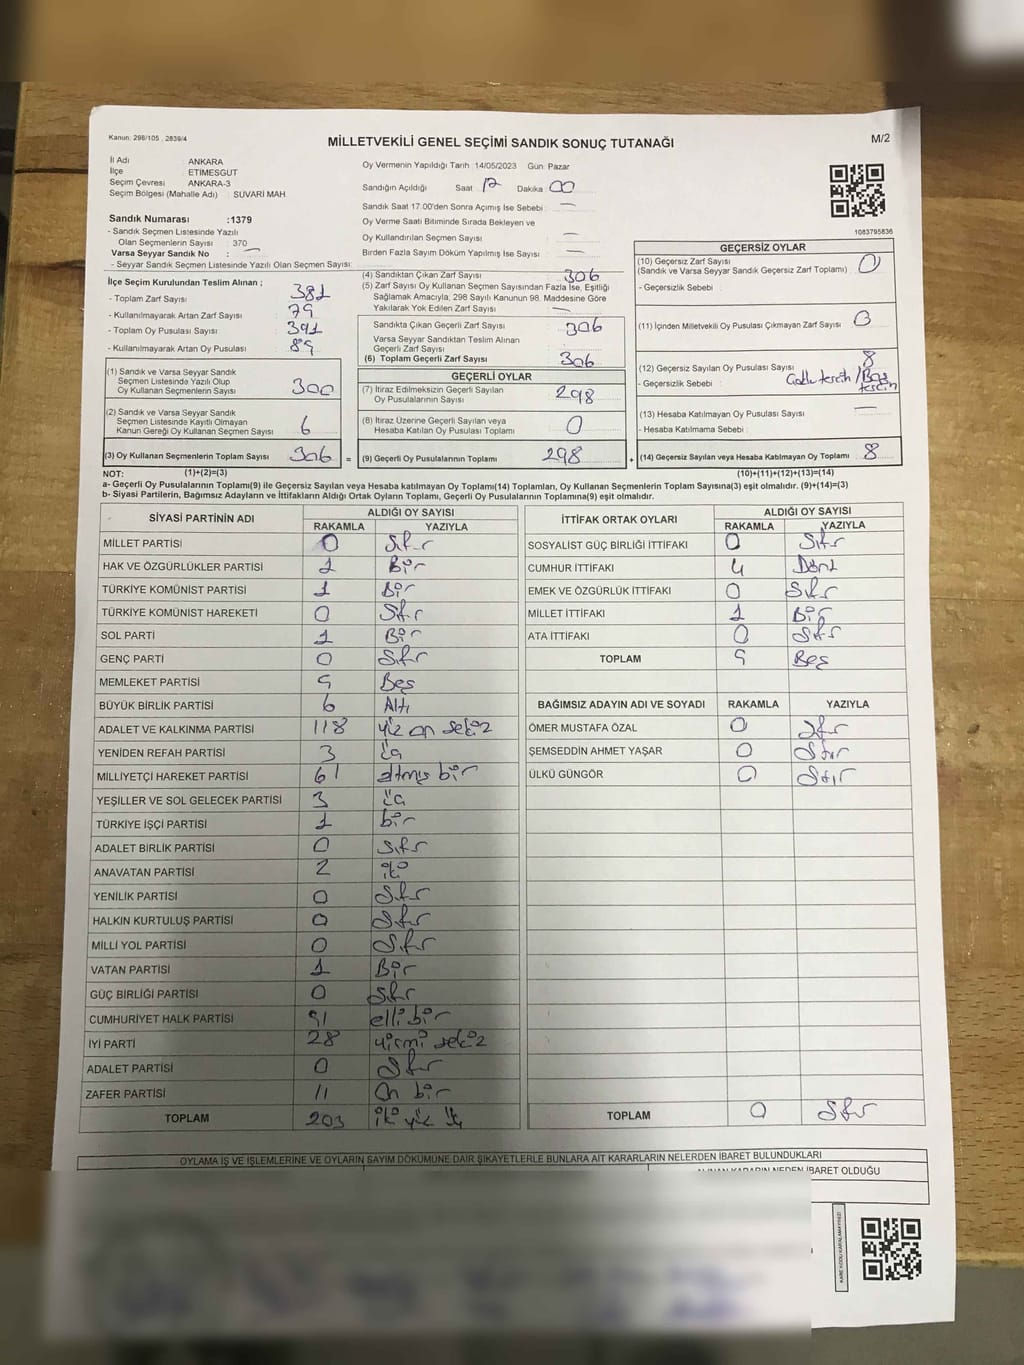 Kanun: 298/105 , 2839/4
MİLLETVEKİLİ GENEL SEÇİMİ SANDIK SONUÇ TUTANAĞI
M/2
İl Adı ANKARA
İlçe ETİMESGUT
Seçim Çevresi ANKARA-3
Seçim Bölgesi (Mahalle Adı) : SÜVARİ MAH
Sandık Numarası :1379
- Sandık Seçmen Listesinde Yazılı
Olan Seçmenlerin Sayısı : 370
Varsa Seyyar Sandık No : —
- Seyyar Sandık Seçmen Listesinde Yazılı Olan Seçmen Sayısı:
Oy Vermenin Yapıldığı Tarih :14/05/2023 Gün: Pazar
Sandığın Açıldığı Saat 17 Dakika 00
Sandık Saat 17.00'den Sonra Açımış İse Sebebi : —
Oy Verme Saati Bitiminde Sırada Bekleyen ve
Oy Kullandırılan Seçmen Sayısı : —
Birden Fazla Sayım Döküm Yapılmış İse Sayısı : —
1083795836
İlçe Seçim Kurulundan Teslim Alınan ;
- Toplam Zarf Sayısı : 381
- Kullanılmayarak Artan Zarf Sayısı : 79
- Toplam Oy Pusulası Sayısı : 391
- Kullanılmayarak Artan Oy Pusulası : 89
(1) Sandık ve Varsa Seyyar Sandık
Seçmen Listesinde Yazılı Olup
Oy Kullanan Seçmenlerin Sayısı 300
(2) Sandık ve Varsa Seyyar Sandık
Seçmen Listesinde Kayıtlı Olmayan
Kanun Gereği Oy Kullanan Seçmen Sayısı 6
(3) Oy Kullanan Seçmenlerin Toplam Sayısı 306 =
(4) Sandıktan Çıkan Zarf Sayısı 306
(5) Zarf Sayısı Oy Kullanan Seçmen Sayısından Fazla İse, Eşitliği
Sağlamak Amacıyla, 298 Sayılı Kanunun 98. Maddesine Göre
Yakılarak Yok Edilen Zarf Sayısı : —
Sandıkta Çıkan Geçerli Zarf Sayısı 306
Varsa Seyyar Sandıktan Teslim Alınan
Geçerli Zarf Sayısı
(6) Toplam Geçerli Zarf Sayısı 306
GEÇERLİ OYLAR
(7) İtiraz Edilmeksizin Geçerli Sayılan
Oy Pusulalarının Sayısı : 298
(8) İtiraz Üzerine Geçerli Sayılan veya
Hesaba Katılan Oy Pusulası Toplamı 0
(9) Geçerli Oy Pusulalarının Toplamı 298 +
GEÇERSİZ OYLAR
(10) Geçersiz Zarf Sayısı
(Sandık ve Varsa Seyyar Sandık Geçersiz Zarf Toplamı) 0
- Geçersizlik Sebebi :
(11) İçinden Milletvekili Oy Pusulası Çıkmayan Zarf Sayısı 0
(12) Geçersiz Sayılan Oy Pusulası Sayısı 8
- Geçersizlik Sebebi : Çoklu tercih / Boş
tercih
(13) Hesaba Katılmayan Oy Pusulası Sayısı —
- Hesaba Katılmama Sebebi :
(14) Geçersiz Sayılan veya Hesaba Katılmayan Oy Toplamı 8
NOT: (1)+(2)=(3) (10)+(11)+(12)+(13)=(14)
a- Geçerli Oy Pusulalarının Toplamı(9) ile Geçersiz Sayılan veya Hesaba katılmayan Oy Toplamı(14) Toplamları, Oy Kullanan Seçmenlerin Toplam Sayısına(3) eşit olmalıdır. (9)+(14)=(3)
b- Siyasi Partilerin, Bağımsız Adayların ve İttifakların Aldığı Ortak Oyların Toplamı, Geçerli Oy Pusulalarının Toplamına(9) eşit olmalıdır.
SİYASİ PARTİNİN ADI ALDIĞI OY SAYISI
RAKAMLA YAZIYLA
MİLLET PARTİSİ 0 Sıfır
HAK VE ÖZGÜRLÜKLER PARTİSİ 1 Bir
TÜRKİYE KOMÜNİST PARTİSİ 1 Bir
TÜRKİYE KOMÜNİST HAREKETİ 0 Sıfır
SOL PARTİ 1 Bir
GENÇ PARTİ 0 Sıfır
MEMLEKET PARTİSİ 5 Beş
BÜYÜK BİRLİK PARTİSİ 6 Altı
ADALET VE KALKINMA PARTİSİ 118 yüz on sekiz
YENİDEN REFAH PARTİSİ 3 üç
MİLLİYETÇİ HAREKET PARTİSİ 61 altmış bir
YEŞİLLER VE SOL GELECEK PARTİSİ 3 üç
TÜRKİYE İŞÇİ PARTİSİ 1 bir
ADALET BİRLİK PARTİSİ 0 Sıfır
ANAVATAN PARTİSİ 2 iki
YENİLİK PARTİSİ 0 Sıfır
HALKIN KURTULUŞ PARTİSİ 0 Sıfır
MİLLİ YOL PARTİSİ 0 Sıfır
VATAN PARTİSİ 1 Bir
GÜÇ BİRLİĞİ PARTİSİ 0 Sıfır
CUMHURİYET HALK PARTİSİ 51 elli bir
İYİ PARTİ 28 yirmi sekiz
ADALET PARTİSİ 0 Sıfır
ZAFER PARTİSİ 11 On bir
TOPLAM 203 iki yüz üç
İTTİFAK ORTAK OYLARI ALDIĞI OY SAYISI
RAKAMLA YAZIYLA
SOSYALİST GÜÇ BİRLİĞİ İTTİFAKI 0 Sıfır
CUMHUR İTTİFAKI 4 Dört
EMEK VE ÖZGÜRLÜK İTTİFAKI 0 Sıfır
MİLLET İTTİFAKI 1 Bir
ATA İTTİFAKI 0 Sıfır
TOPLAM 5 Beş
BAĞIMSIZ ADAYIN ADI VE SOYADI RAKAMLA YAZIYLA
ÖMER MUSTAFA ÖZAL 0 Sıfır
ŞEMSEDDİN AHMET YAŞAR 0 Sıfır
ÜLKÜ GÜNGÖR 0 Sıfır
TOPLAM 0 Sıfır
OYLAMA İŞ VE İŞLEMLERİNE VE OYLARIN SAYIM DÖKÜMÜNE DAİR ŞİKAYETLERLE BUNLARA AİT KARARLARIN NELERDEN İBARET BULUNDUKLARI
ALINAN KARARIN NEDEN İBARET OLDUĞU
KARE KODU KARALAMAYINIZ!